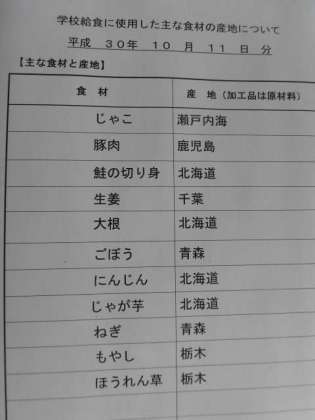 学校給食に使用した主な食材の産地について
平成 30年 10 月 11 日 分
【主な食材と産地】
食 材 産 地（加工品は原材料）
じゃこ 瀬戸内海
豚肉 鹿児島
鮭の切り身 北海道
生姜 千葉
大根 北海道
ごぼう 青森
にんじん 北海道
じゃが芋 北海道
ねぎ 青森
もやし 栃木
ほうれん草 栃木